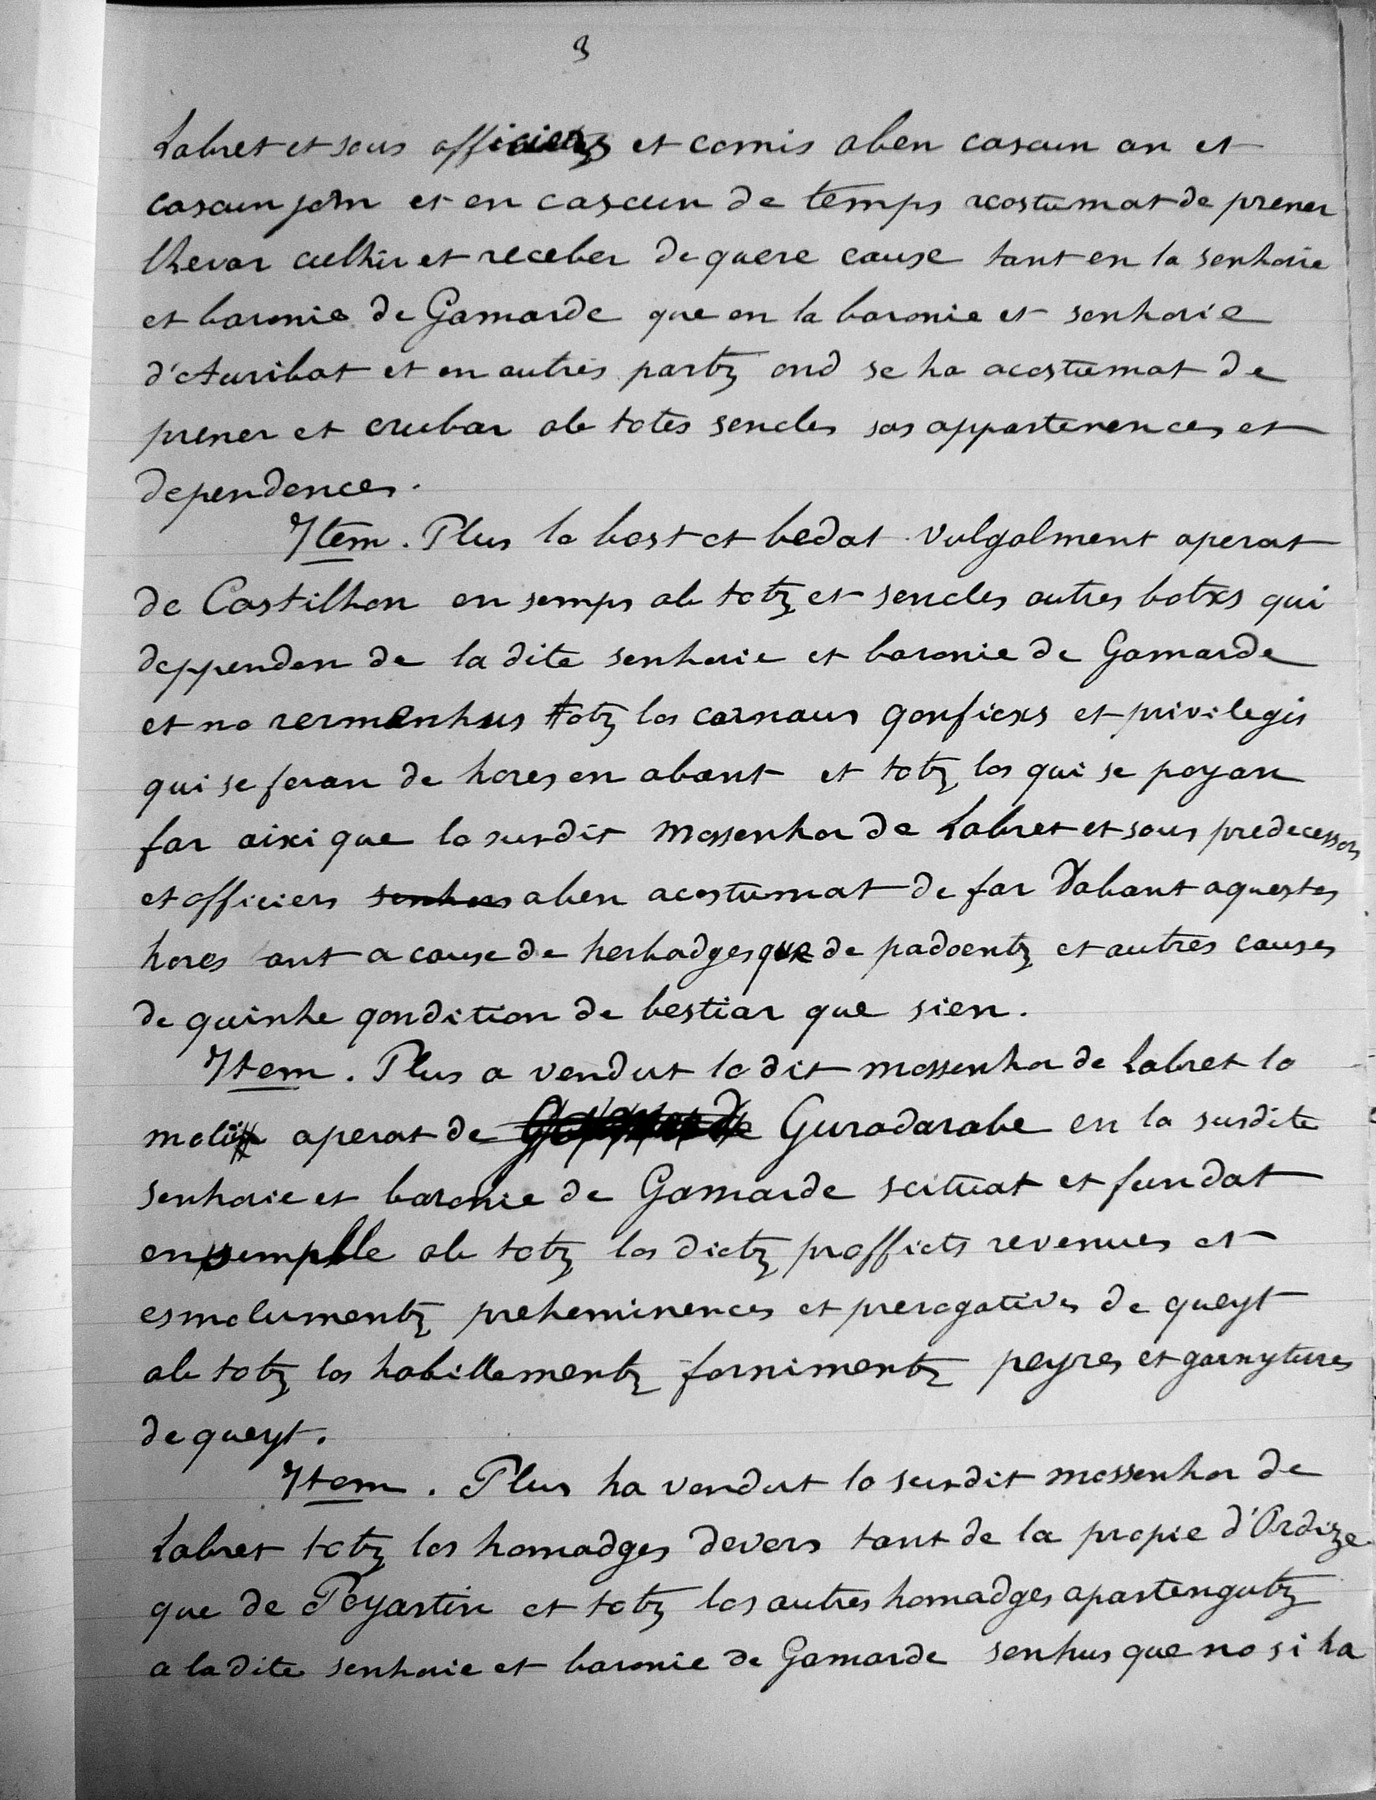 3
Labret et sous officiers et comis aben cascun an et
cascun jorn et en cascun de temps acostumat de prener
lhevar culhir et receber de quere cause tant en la senhorie
et baronie de Gamarde que en la baronie et senhorie
d'Auribat et en autres partz ond se ha acostumat de
prener et crubar ab totes sencles sas appartenences et
dependences.
Item. Plus lo bost et bedat vulgalment aperat
de Castilhon en semps ab totz et sencles autres botxs qui
deppenden de la dite senhorie et baronie de Gamarde
et no remenhus totz los carnaus qonfiexs et privilegis
qui se feran de hores en abant et totz los qui se poyan
far aixi que lo susdit mossenhor de Labret et sous predecessors
et officiers aben acostumat de far dabant aquestes
hores tant a cause de herbadges que de padoentz et autres causes
de quinhe qondition de bestiar que sien.
Item. Plus a vendut lo dit mossenhor de Labret lo
molin aperat de Guradarabe en la susdite
senhorie et baronie de Gamarde scituat et fundat
ensemple ab totz los dictz proffiets revenues et
esmolumentz preheminences et prerogatives de queyt
ab totz los habillementz fornimentz peyres et garnytures
de queyt.
Item. Plus ha vendut lo susdit mossenhor de
Labret totz los homadges devers tant de la propie d'Ordize
que de Poyartin et totz los autres homadges apartengutz
a la dite senhorie et baronie de Gamarde senhus que no si ha